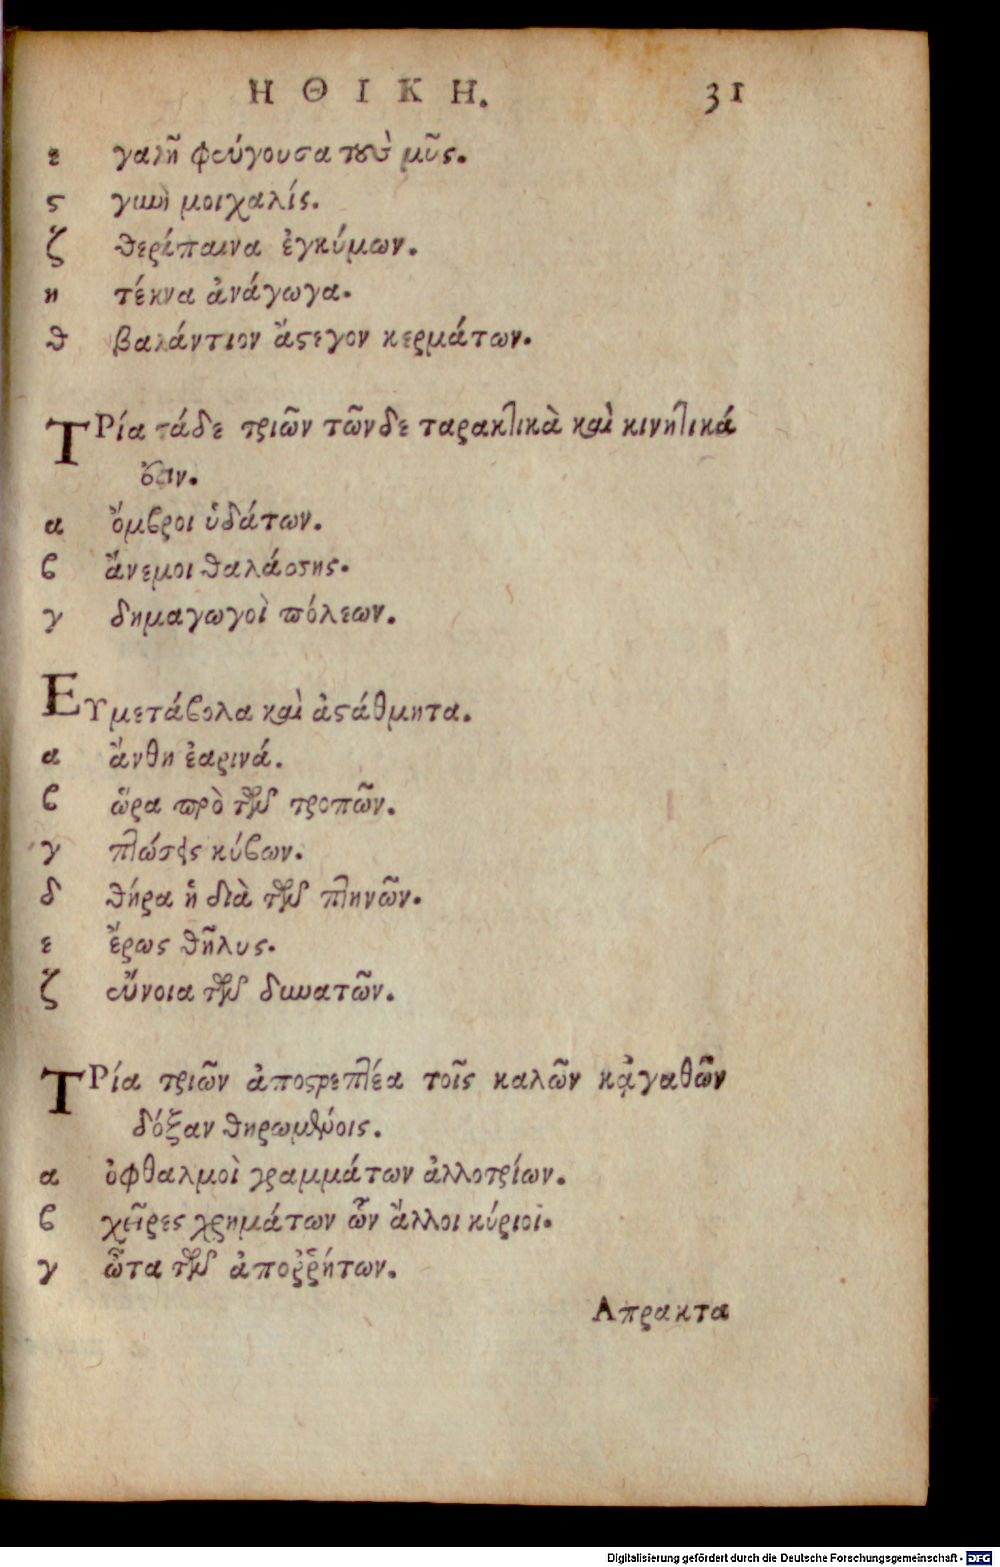 ΗΘΙΚΗ. 31
ε γαλῆ φεύγουσα τοὺς μῦς.
ς γυνὴ μοιχαλίς.
ζ θεράπαινα ἐγκύμων.
η τέκνα ἀνάγωγα.
θ βαλάντιον ἄστεγον κερμάτων.
ΤΡία τάδε τριῶν τῶνδε ταρακτικὰ καὶ κινητικά
ὅσιν.
α ὄμβροι ὑδάτων.
β ἄνεμοι θαλάσσης.
γ δημαγωγοὶ πόλεων.
ΕΥμετάβολα καὶ ἀστάθμητα.
α ἄνθη ἐαρινά.
β ὥρα πρὸ τῶν τροπῶν.
γ πτώσεις κύβων.
δ θήρα ἡ διὰ τῶν πτηνῶν.
ε ἔρως θῆλυς.
ζ εὔνοια τῶν δυνατῶν.
ΤΡία τριῶν ἀποστρεπτέα τοῖς καλῶν κᾀγαθῶν
δόξαν θηρωμένοις.
α ὀφθαλμοὶ γραμμάτων ἀλλοτρίων.
β χεῖρες χρημάτων ὧν ἄλλοι κύριοι.
γ ὦτα τῶν ἀποῤῥήτων.
Απρακτα
Digitalisierung gefördert durch die Deutsche Forschungsgemeinschaft - DFG